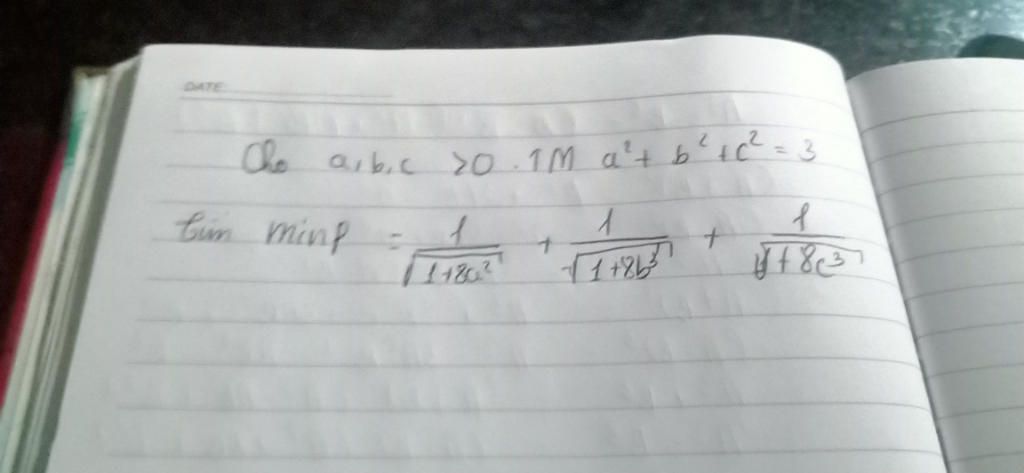 DATE:
Cho a, b, c >0 . TM a² + b² + c² = 3
tìm minP = 1/√(1+8a²) + 1/√(1+8b³) + 1/√(1+8c³)